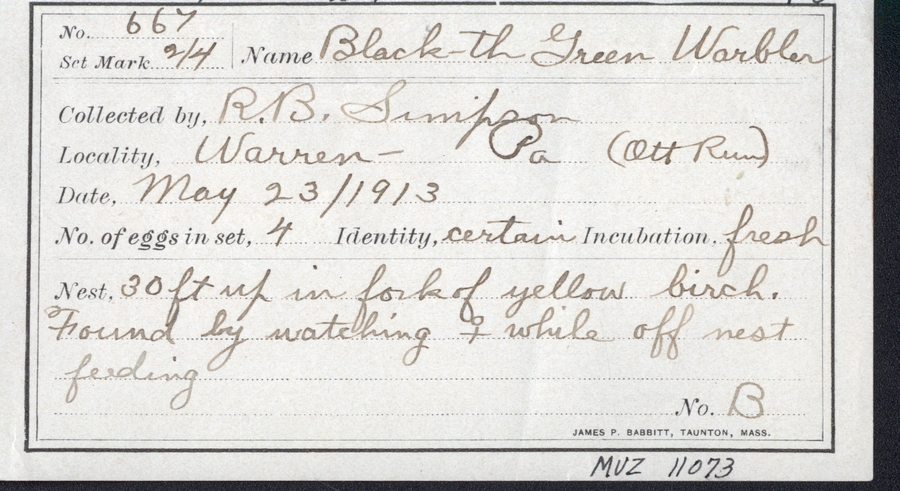 No. 667
Set Mark 2/4 Name Black-th Green Warbler
Collected by, R.B. Simpson
Locality, Warren- Pa (Ott Run)
Date, May 23/1913
No. of eggs in set, 4 Identity, certain Incubation, fresh
Nest, 30 ft up in fork of yellow birch.
Found by watching ♀ while off nest
feeding
No. B
JAMES P. BABBITT, TAUNTON, MASS.
MVZ 11073